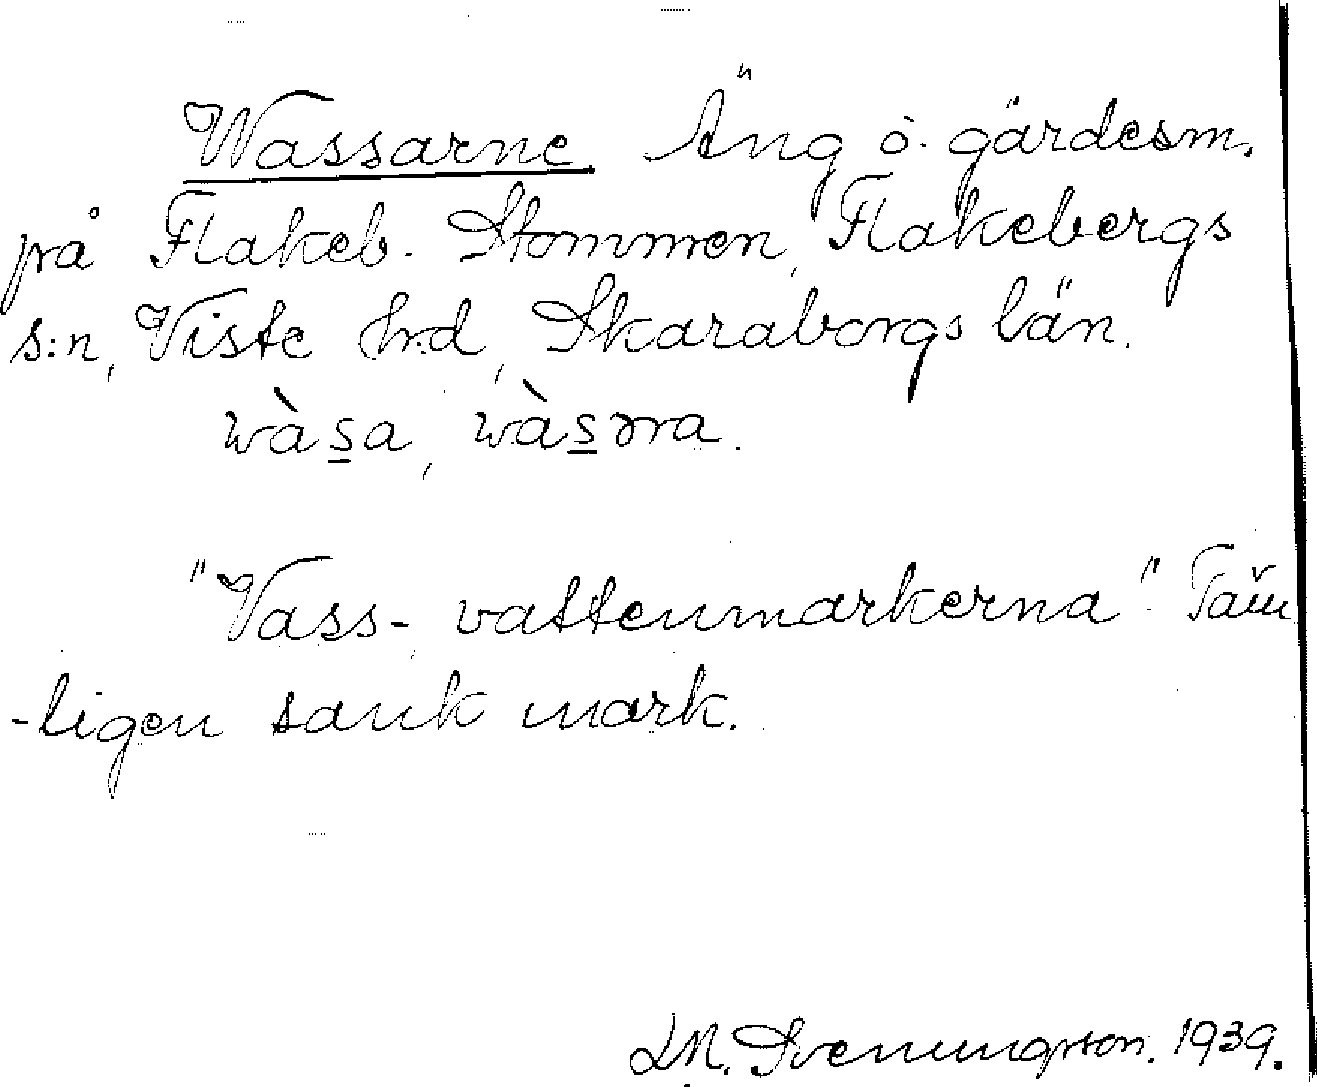 Wassarne. Äng o. gärdesm.
på Flakeb. Stommen, Flakebergs
s:n, Viste hrd, Skaraborgs län.
wàs̲a, wàs̲ɔra.
"Vass-, vattenmarkerna". Täm
-ligen sank mark.
L.M. Svenungsson. 1939.